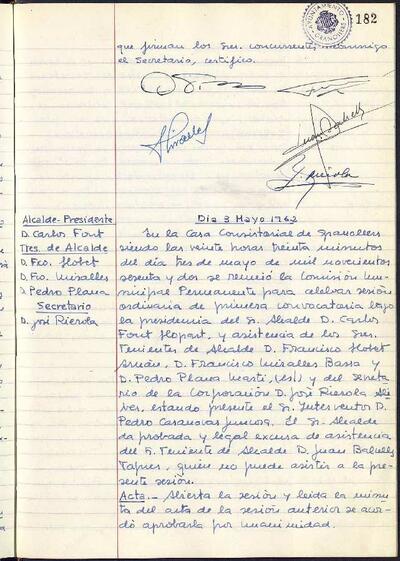 AYUNTAMIENTO
GRANOLLERS
182
que firman los Sres. concurrentes, conmigo
el Secretario, certifico.
Día 3 Mayo 1962
Alcalde-Presidente
D. Carlos Font
Ttes. de Alcalde
D. Fco. Llobet
D. Fco. Miralles
D. Pedro Plana
Secretario
D. José Rierola
En la Casa Consistorial de Granollers
siendo las veinte horas treinta minutos
del día tres de mayo de mil novecientos
sesenta y dos se reunió la Comisión Mu-
nicipal Permanente para celebrar sesión
ordinaria de primera convocatoria bajo
la presidencia del Sr. Alcalde D. Carlos
Font Llopart, y asistencia de los Sres.
Tenientes de Alcalde D. Francisco Llobet
Arnán, D. Francisco Miralles Bassa y
D. Pedro Plana Martí, (est) y del Secreta-
rio de la Corporación D. José Rierola Ali-
ver, estando presente el Sr. Interventor D.
Pedro Casanovas Juncosa. El Sr. Alcalde
da probada y legal excusa de asistencia
del 5. Teniente de Alcalde D. Juan Balcells
quien no puede asistir a la pre-
sente sesión.
Acta.- Abierta la sesión y leida la minu-
ta del acta de la sesión anterior se acor-
dó aprobarla por unanimidad.